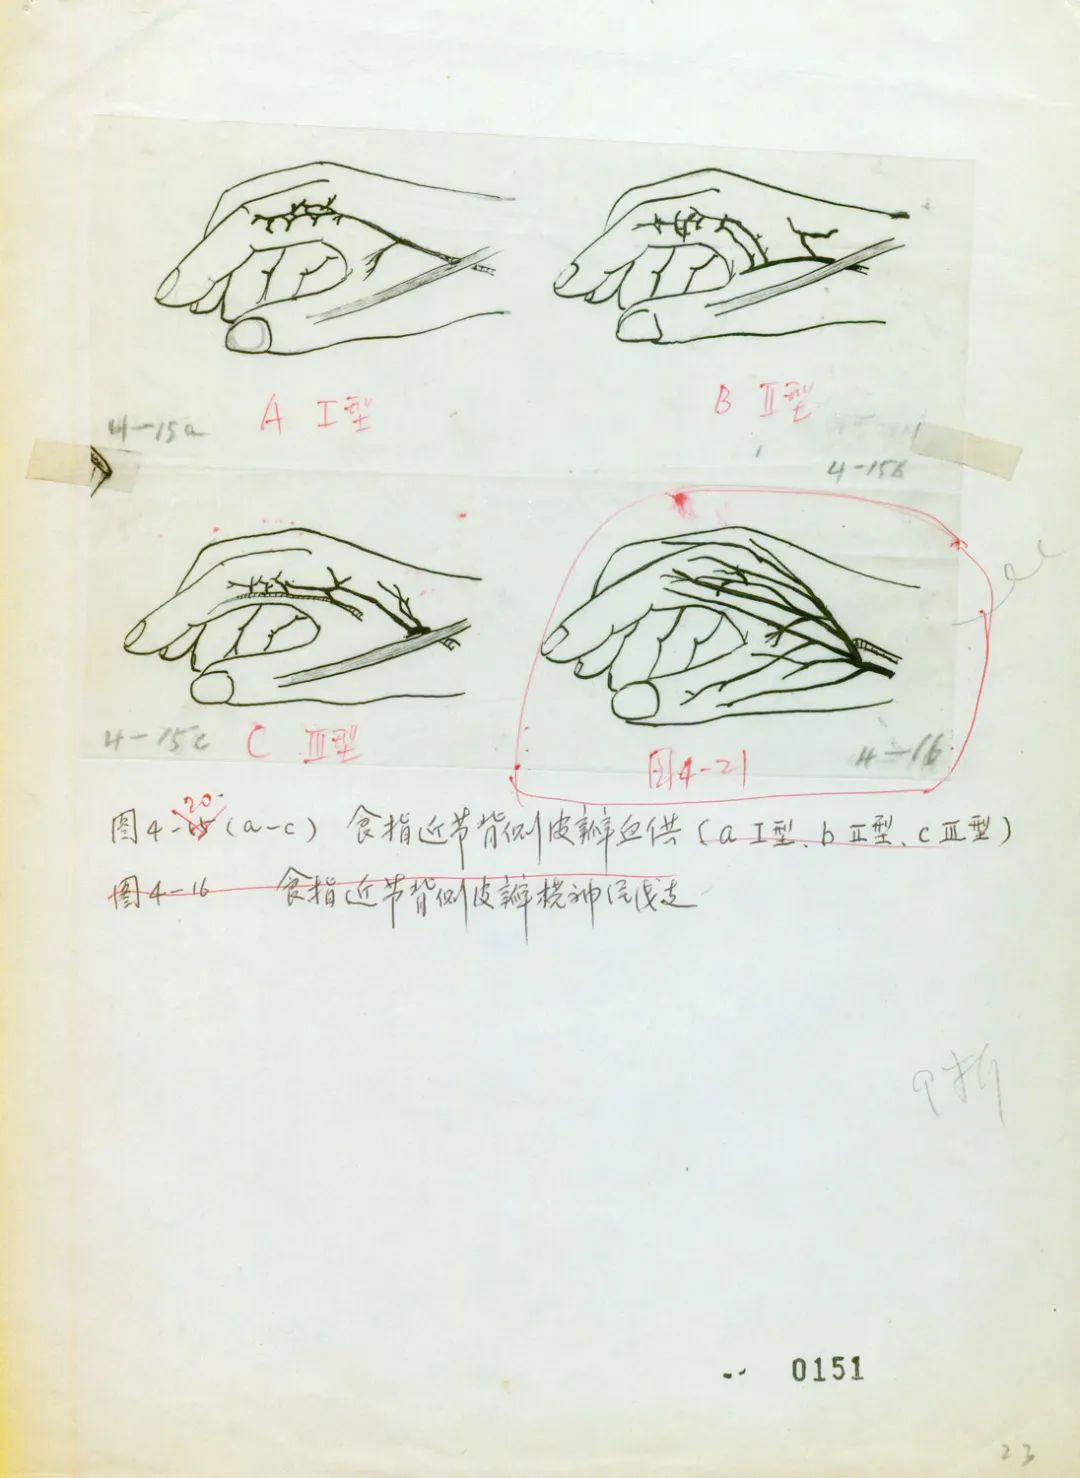 A I型
B II型
4-15a
4-15b
4-15c
C III型
图4-21
4-16
20.
图4-15 (a-c) 食指近节背侧皮瓣血供 (a I型、b II型、c III型)
图4-16 食指近节背侧皮瓣桡神经浅支
0151
23